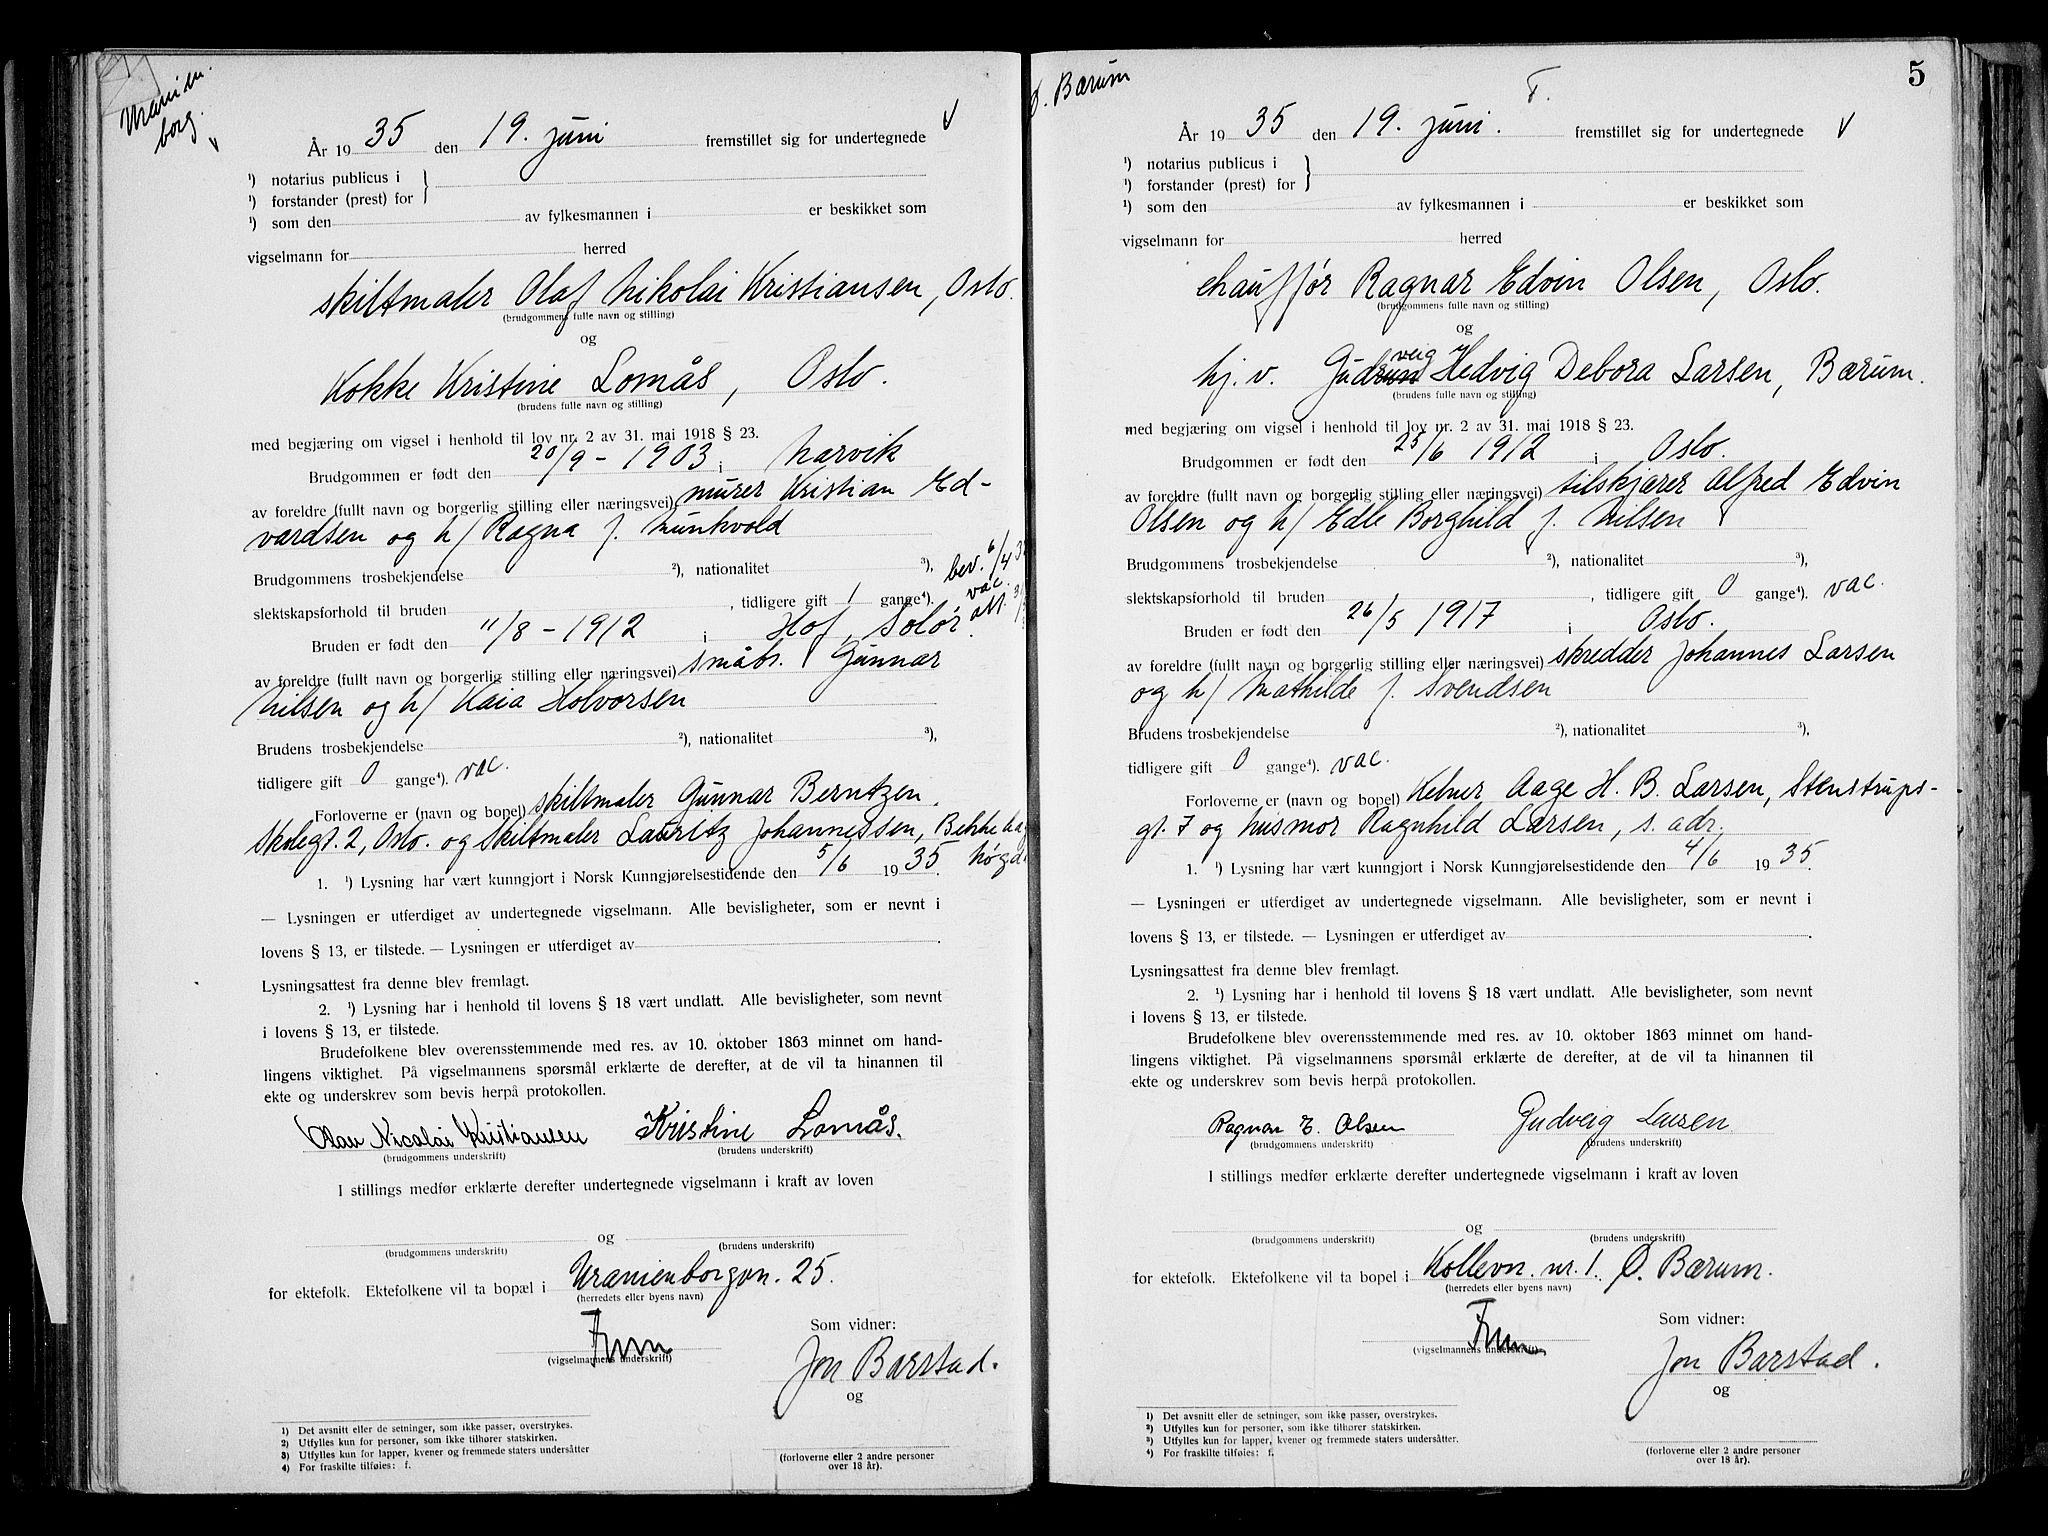 Uranien
borg.
År 19 35 den 19. juni fremstillet sig for undertegnede
¹) notarius publicus i
¹) forstander (prest) for
¹) som den av fylkesmannen i er beskikket som
vigselmann for herred
skiltmaler Olaf Nikolai Kristiansen, Oslo.
(brudgommens fulle navn og stilling)
og
Kokke Kristine Lomås, Oslo.
(brudens fulle navn og stilling)
med begjæring om vigsel i henhold til lov nr. 2 av 31. mai 1918 § 23.
Brudgommen er født den 20/9 - 1903 i Narvik
av foreldre (fullt navn og borgerlig stilling eller næringsvei) murer Kristian Ed-
vardsen og h/ Ragna f. Lunkvold
Brudgommens trosbekjendelse ²), nationalitet ³), bev. 6/4
slektskapsforhold til bruden , tidligere gift 1 gange⁴). vac. att.
Bruden er født den 11/8 - 1912 i Hof, Solør.
av foreldre (fullt navn og borgerlig stilling eller næringsvei) småbr. Gunnar
Nilsen og h/ Kaia Holvorsen
Brudens trosbekjendelse ²), nationalitet ³),
tidligere gift 0 gange⁴). vac.
Forloverne er (navn og bopel) skiltmaler Gunnar Berntzen,
Skolegt. 2, Oslo. og skiltmaler Lauritz Johannessen, Bekkelags
høgd.
1. ¹) Lysning har vært kunngjort i Norsk Kunngjørelsestidende den 5/6 19 35.
— Lysningen er utferdiget av undertegnede vigselmann. Alle bevisligheter, som er nevnt i
lovens § 13, er tilstede. — Lysningen er utferdiget av .
Lysningsattest fra denne blev fremlagt.
2. ¹) Lysning har i henhold til lovens § 18 vært undlatt. Alle bevisligheter, som nevnt
i lovens § 13, er tilstede.
Brudefolkene blev overensstemmende med res. av 10. oktober 1863 minnet om hand-
lingens viktighet. På vigselmannens spørsmål erklærte de derefter, at de vil ta hinannen til
ekte og underskrev som bevis herpå protokollen.
Olav Nicolai Kristiansen Kristine Lomås.
(brudgommens underskrift) (brudens underskrift)
I stillings medfør erklærte derefter undertegnede vigselmann i kraft av loven
og
(brudgommens underskrift) (brudens underskrift)
for ektefolk. Ektefolkene vil ta bopæl i Uranienborgvn. 25.
(herredets eller byens navn)
Som vidner:
(vigselmannens underskrift)
Jon Barstad.
og
(forloverne eller 2 andre personer
over 18 år).
1) Det avsnitt eller de setninger, som ikke passer, overstrykes.
2) Utfylles kun for personer, som ikke tilhører statskirken.
3) Utfylles kun for lapper, kvener og fremmede staters undersåtter
4) For fraskilte tilføies: f.
Ø. Bærum
T.
5
År 19 35 den 19. juni. fremstillet sig for undertegnede
¹) notarius publicus i
¹) forstander (prest) for
¹) som den av fylkesmannen i er beskikket som
vigselmann for herred
chauffør Ragnar Edvin Olsen, Oslo.
(brudgommens fulle navn og stilling)
og
veig
hj. v. Gudrun Hedvig Debora Larsen, Bærum.
(brudens fulle navn og stilling)
med begjæring om vigsel i henhold til lov nr. 2 av 31. mai 1918 § 23.
Brudgommen er født den 25/6 1912 i Oslo.
av foreldre (fullt navn og borgerlig stilling eller næringsvei) tilskjærer Alfred Edvin
Olsen og h/ Edle Borghild f. Nilsen
Brudgommens trosbekjendelse ²), nationalitet ³),
slektskapsforhold til bruden , tidligere gift 0 gange⁴). vac.
Bruden er født den 26/5 1917 i Oslo.
av foreldre (fullt navn og borgerlig stilling eller næringsvei) skredder Johannes Larsen
og h/ Mathilde f. Svendsen
Brudens trosbekjendelse ²), nationalitet ³),
tidligere gift 0 gange⁴). vac.
Forloverne er (navn og bopel) Kelner Aage H. B. Larsen, Stenstrups-
gt. 7 og husmor Ragnhild Larsen, s. adr.
1. ¹) Lysning har vært kunngjort i Norsk Kunngjørelsestidende den 4/6 19 35.
— Lysningen er utferdiget av undertegnede vigselmann. Alle bevisligheter, som er nevnt i
lovens § 13, er tilstede. — Lysningen er utferdiget av .
Lysningsattest fra denne blev fremlagt.
2. ¹) Lysning har i henhold til lovens § 18 vært undlatt. Alle bevisligheter, som nevnt
i lovens § 13, er tilstede.
Brudefolkene blev overensstemmende med res. av 10. oktober 1863 minnet om hand-
lingens viktighet. På vigselmannens spørsmål erklærte de derefter, at de vil ta hinannen til
ekte og underskrev som bevis herpå protokollen.
Ragnar E. Olsen Gudveig Larsen.
(brudgommens underskrift) (brudens underskrift)
I stillings medfør erklærte derefter undertegnede vigselmann i kraft av loven
og
(brudgommens underskrift) (brudens underskrift)
for ektefolk. Ektefolkene vil ta bopel i Kollevn. nr. 1. Ø. Bærum.
(herredets eller byens navn)
Som vidner:
(vigselmannens underskrift)
Jon Barstad.
og
(forloverne eller 2 andre personer
over 18 år).
1) Det avsnitt eller de setninger, som ikke passer, overstrykes.
2) Utfylles kun for personer, som ikke tilhører statskirken.
3) Utfylles kun for lapper, kvener og fremmede staters undersåtter.
4) For fraskilte tilføies: f.